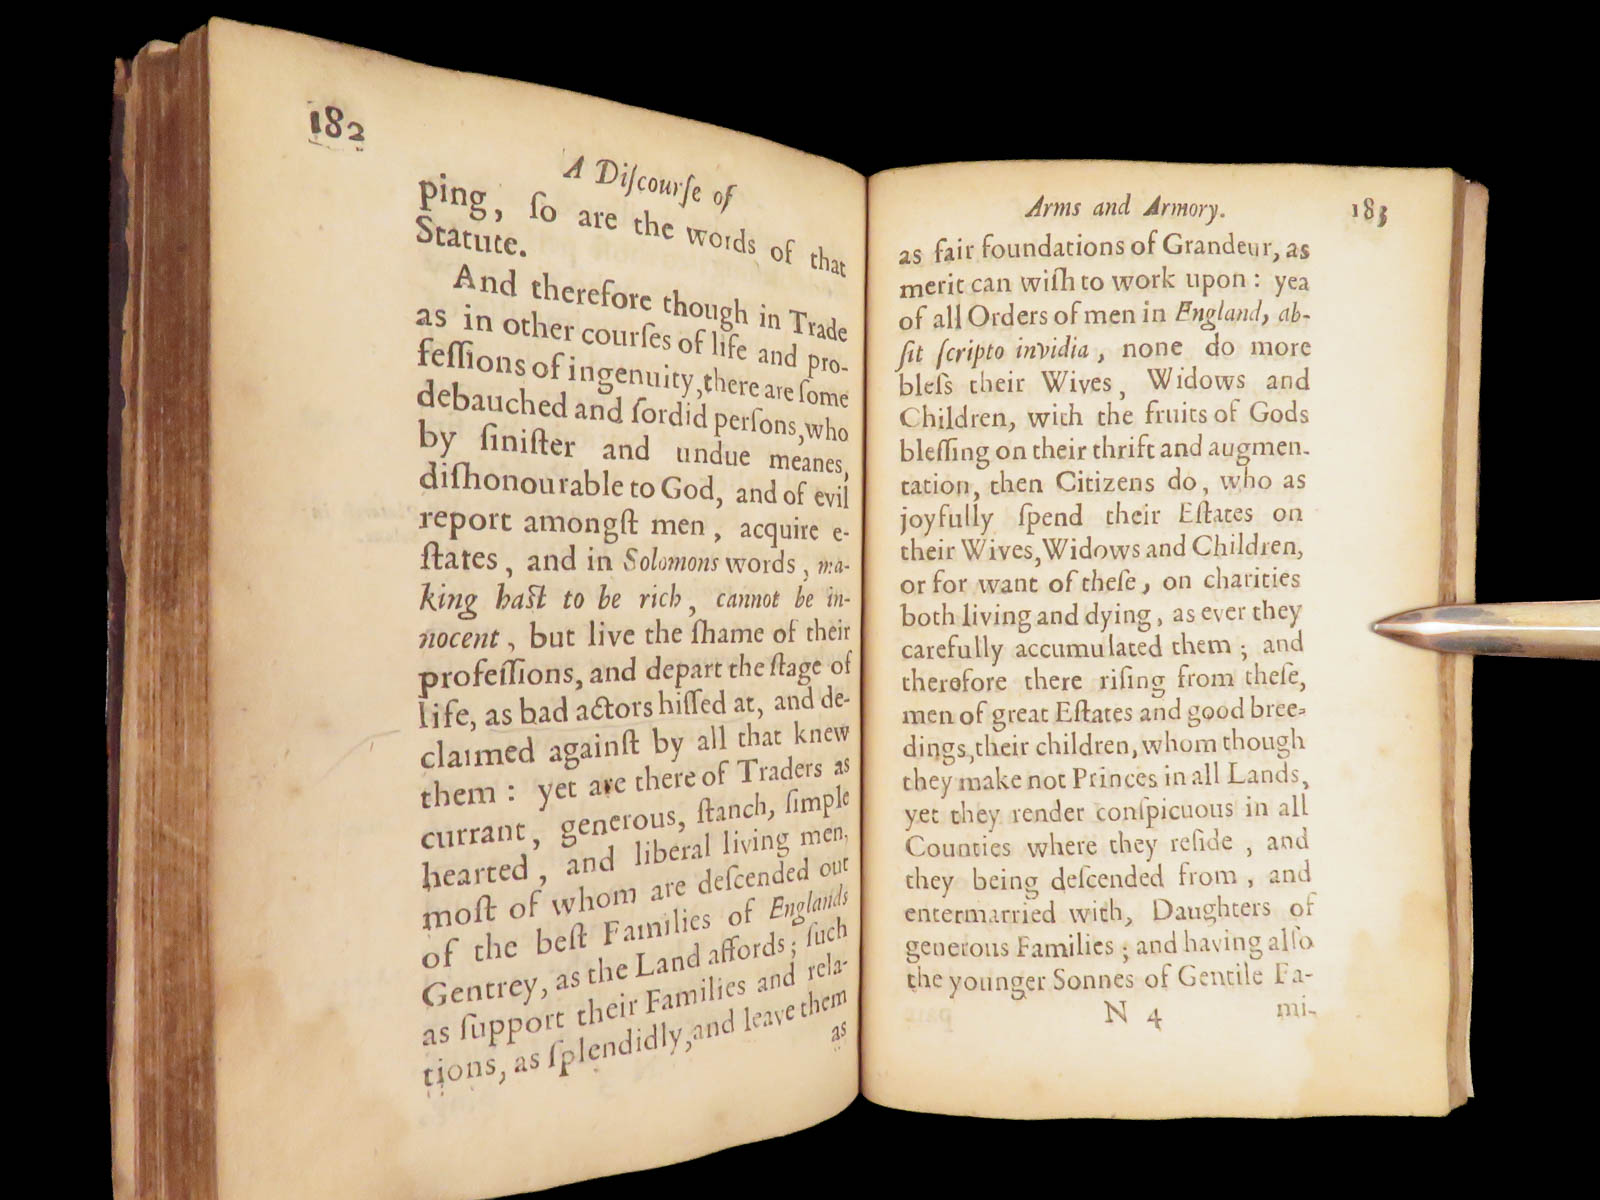 182
A Diſcourſe of
ping, ſo are the words of that
Statute.
And therefore though in Trade
as in other courſes of life and pro-
feſſions of ingenuity, there are ſome
debauched and ſordid perſons, who
by ſiniſter and undue meanes,
diſhonourable to God, and of evil
report amongſt men, acquire e-
ſtates, and in Solomons words, ma-
king haſt to be rich, cannot be in-
nocent, but live the ſhame of their
profeſſions, and depart the ſtage of
life, as bad actors hiſſed at, and de-
claimed againſt by all that knew
them: yet are there of Traders as
currant, generous, ſtanch, ſimple
hearted, and liberal living men,
moſt of whom are deſcended out
of the beſt Families of Englands
Gentrey, as the Land affords; ſuch
as ſupport their Families and rela-
tions, as ſplendidly, and leave them
as
Arms and Armory. 183
as fair foundations of Grandeur, as
merit can wiſh to work upon: yea
of all Orders of men in England, ab-
ſit ſcripto invidia, none do more
bleſs their Wives, Widows and
Children, with the fruits of Gods
bleſſing on their thrift and augmen-
tation, then Citizens do, who as
joyfully ſpend their Eſtates on
their Wives, Widows and Children,
or for want of theſe, on charities
both living and dying, as ever they
carefully accumulated them; and
therefore there riſing from theſe,
men of great Eſtates and good bree-
dings, their children, whom though
they make not Princes in all Lands,
yet they render conſpicuous in all
Counties where they reſide, and
they being deſcended from, and
entermarried with, Daughters of
generous Families; and having alſo
the younger Sonnes of Gentile Fa-
N 4 mi-